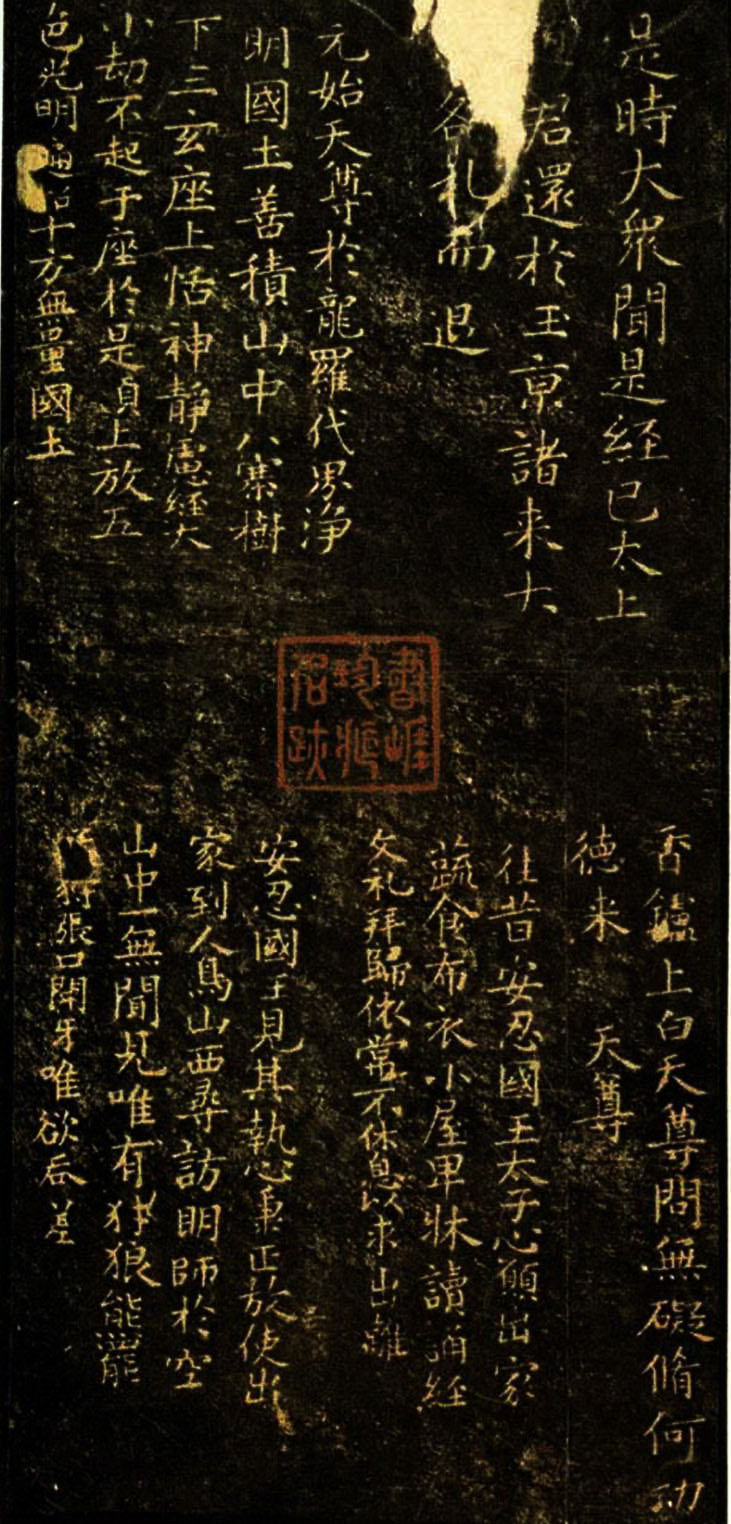 是時大衆聞是経已太上
君還於玉京諸来大
各礼而退
元始天尊於龍羅代界淨
明國土善積山中八騫樹
下三玄座上恬神靜慮経六
小劫不起于座於是頂上放五
色光明通 十方無量國土
書 珍 君 跡
香鑪上白天尊問無礙脩何功
德来 天尊
往昔安忍國王太子心願出家
蔬食布衣小屋卑牀讀誦経
文礼拜歸依常不休息以求出離
安忍國王見其執心秉正放使出
家到人鳥山西尋訪明師於空
山中一無聞見唯有豺狼能羆
張口開牙唯欲吞